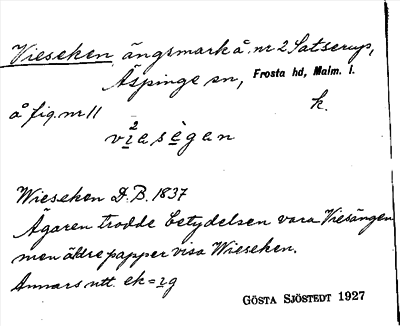 Vieseken ängsmark å nr 2 Satserup,
Äspinge sn, Frosta hd, Malm. l.
å fig. nr 11 k.
v i ²a s è g a n
Wieseken D.B. 1837
Ägaren trodde betydelsen vara Viesängen
men äldre papper visa Wieseken.
Annars utt. ek = ig
GÖSTA SJÖSTEDT 1927